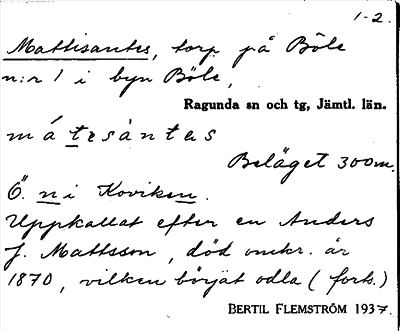 1-2.
Mattisantes, torp på Böle
n:r 1 i byn Böle,
Ragunda sn och tg, Jämtl. län.
mátesàntes
Beläget 300m.
Ö. n i Koviken.
Uppkallat efter en Anders
J. Mattsson, död omkr. år
1870, vilken börjat odla (forts.)
BERTIL FLEMSTRÖM 1937.